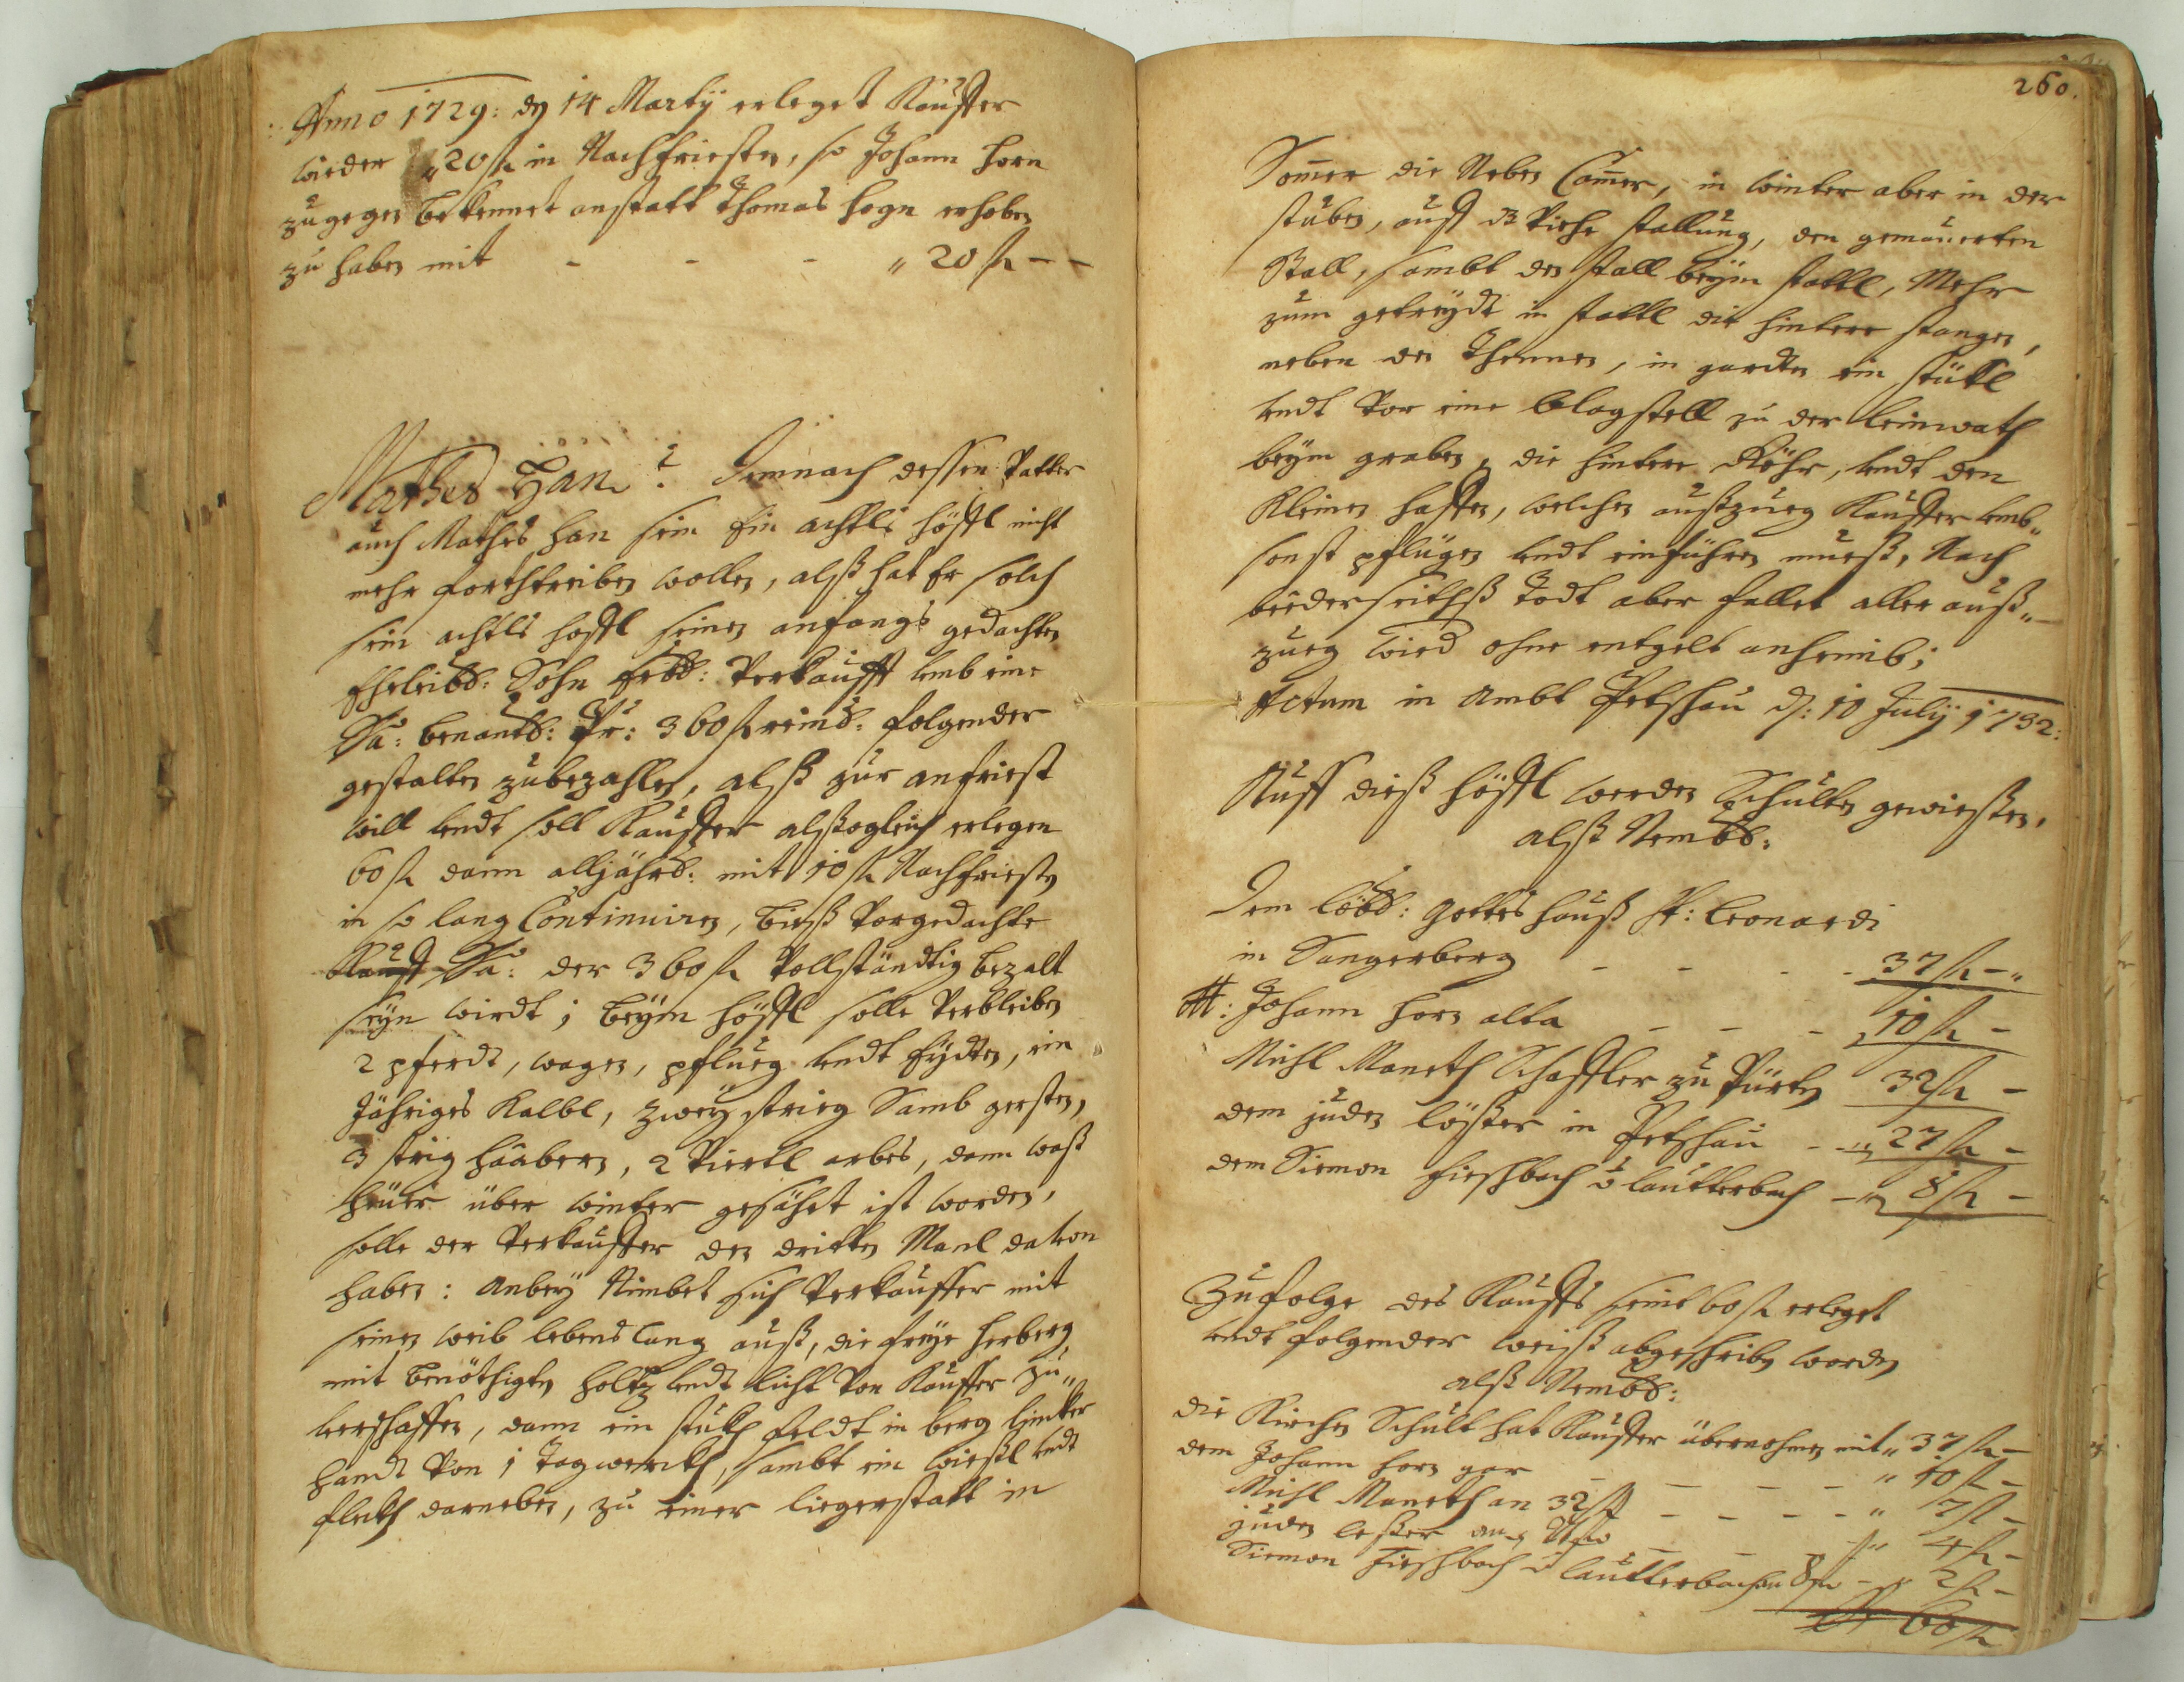 Anno 1729: dn 14 Martÿ erleget Kauffer
wieder 20 fl in Nachfriesten, so Johann Horn
zugegen bekennet anstatt Thomas Hogn erhoben
zu haben mit - - - „ 20 fl - -
Mathes Han. Demnach dessen Vatter
auch Mathes Han sein Ein achtls höffl nicht
mehr forthtreiben wollen, alß hat Er solch
sein achtls hoffl seinen anfangs gedachten
Eheleibl: Sohn Erbl: Verkaufft umb eine
Sa: benantl: Pr: 360 fl reinl: folgender
gestalten zubezahlen, alß zur anfriest
will undt soll Kauffer alßogleich erlegen
60 fl dann alljährl: mit 10 fl Nachfriesten
in so lang Continuiren, bieß Vorgedachte
Kauff Sa: der 360 fl Vollständtig bezalt
seÿn wirdt; beÿm höffl solle Verbleiben
2 pferdt, wagen, pflueg undt Eÿdten, ein
Jähriges Kalbl, zweÿ strieg Samb gersten,
3 strig haabern, 2 Viertl arbes, dann waß
heuer über winter gesähet ist worden,
solle der Verkauffer den dritten Manl davon
haben: anbeÿ Nimbet sich Verkauffer mit
seinen weib lebens lang auß, die freÿe herberg,
mit benöthigten holtz undt licht von Kauffer zu„
verschaffen, dann ein stukh feldt in berg hinter
handt von 1 Tagwerckh, sambt ein wießl undt
flekh darneben, zu einer liegerstatt in
260.
Somer die Neben Camer, in winter aber in der
stuben, auff d Viehe stallung, den gemauerten
Stall, sambt den stall beÿm stattl, Mehr
zum getreÿdt in stattl die hintere stangen,
neben den Thennen, in gardten ein stükl
undt vor eine blagstell zu der leinwath
beÿm graben, die hintere Röhr, undt den
kleinen haffen, welchen außzueg Kauffer umb„
sonst pflügen undt einführen mueß, Nach
beederseithß Todt aber fallet aller auß„
zueg wied ohne entgelt anheimb;
Actum in Ambt Petschau d: 10 Julÿ 1732:
Auff dieß höffl werden Schulten gewießen,
alß Nembl:
Dem löbl: Gotteshauß St: Leonardi
in Sangerberg - - - - 37 fl - „
Johann Horn alda - - - 10 fl -
Michl Maneth Schaffler zu Türkh 32 fl -
dem juden lößer in Petschau - - „ 27 fl -
dem Siemon Fischbach v lautterbach - „ 8 fl -
Zufolge des Kauffs seint 60 fl erleget
undt folgender weiß abgeschriben worden
alß Nembl:
die Kirchen Schult hat Kauffer übernohmen mit „ 37 fl -
dem Johann Horn gar - - - - „ 10 fl -
Michl Maneth an 32 fl - - - - „ 7 fl -
juden leßer - - - „ 4 fl -
Siemon Fischbach v lautterbach an 8 fl - „ 2 fl -
60 fl